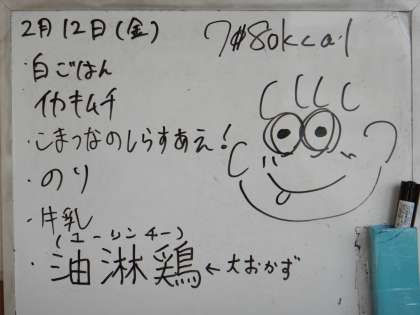 2月12日(金)
780kcal
・白ごはん
イカキムチ
・こまつなのしらすあえ!
・のり
・牛乳
(ユーリンチー)
・油淋鶏←大おかず